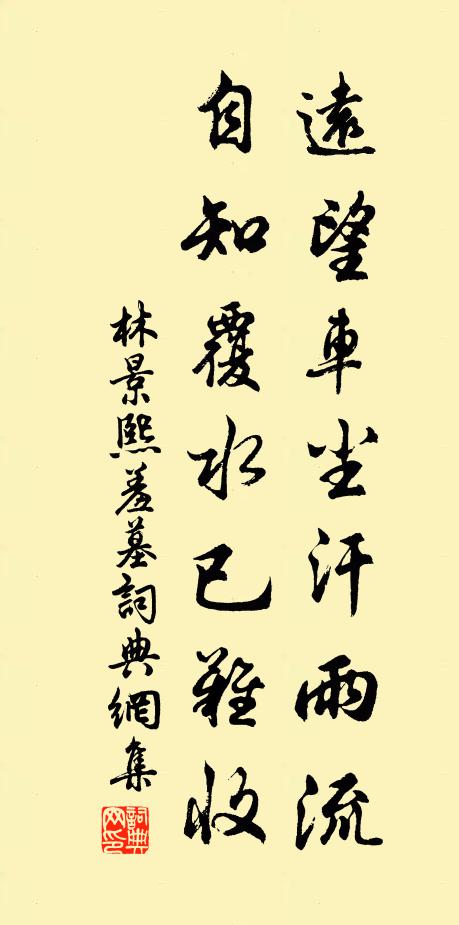 遠望車尘汗雨流
自知覆水已難收
林景熙羞墓詞典網集
詞典網印